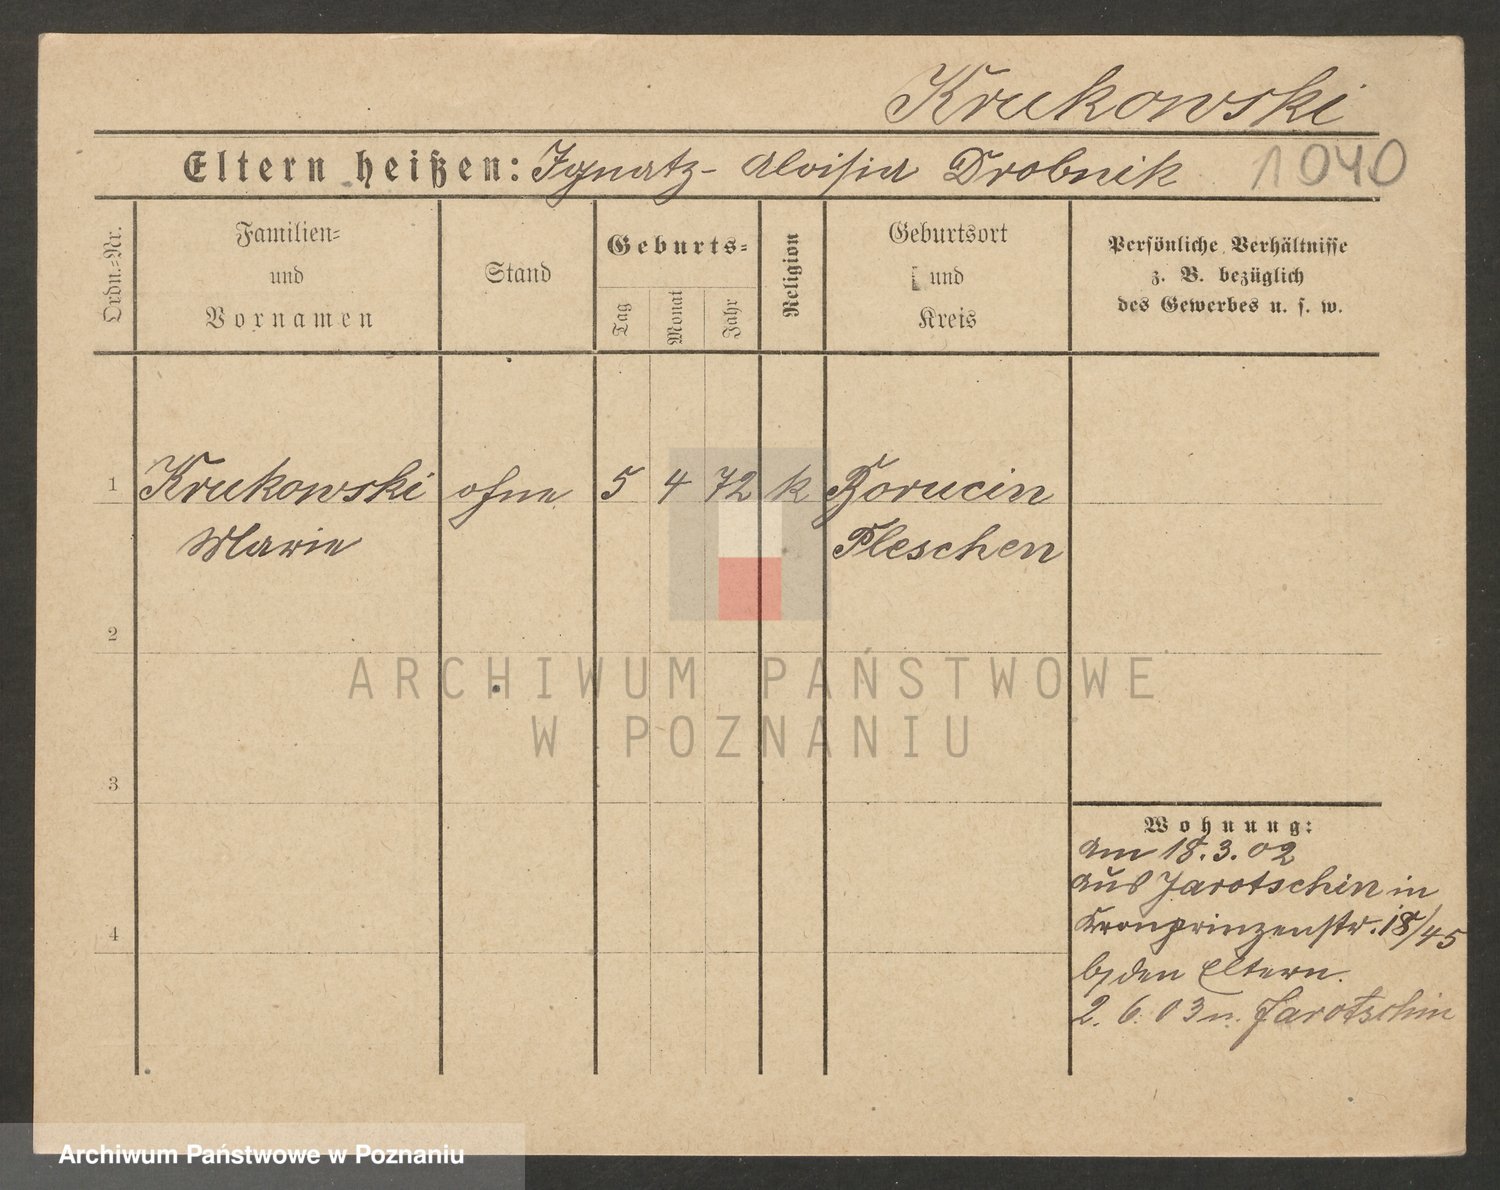 Krukowski
Eltern heißen: Ignatz - Aloisia Drobnik 1040
Ordn.-Nr.
Familien-
und
Vornamen
Stand
Geburts-
Tag
Monat
Jahr
Religion
Geburtsort
und
Kreis
Persönliche Verhältnisse
z. B. bezüglich
des Gewerbes u. s. w.
1 Krukowski ohne 5 4 72 k Borucin
Marie Pleschen
2
ARCHIWUM PAŃSTWOWE
W POZNANIU
3
Wohnung:
am 18.3.02
aus Jarotschin in
Kronprinzenstr. 18/45
4
b/den Eltern.
2. 6. 03 n. Jarotschin
Archiwum Państwowe w Poznaniu